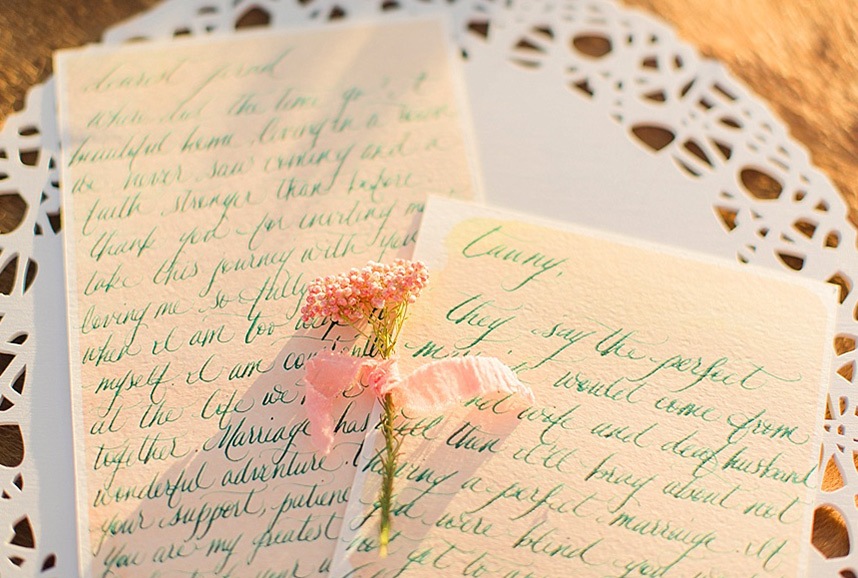 dearest
where did the time go? A
beautiful home living in a town
we never saw coming and a
faith stronger than before
thank you for inviting me
take this journey with you
loving me so fully
when I am too
myself. I am
at the life we
together. Marriage has
wonderful adventure.
your support,
you are my greatest
Tawny,
they say the perfect
would come from
wife and deaf husband
then it'll bring about not
having a perfect marriage. If
were blind you
yet to